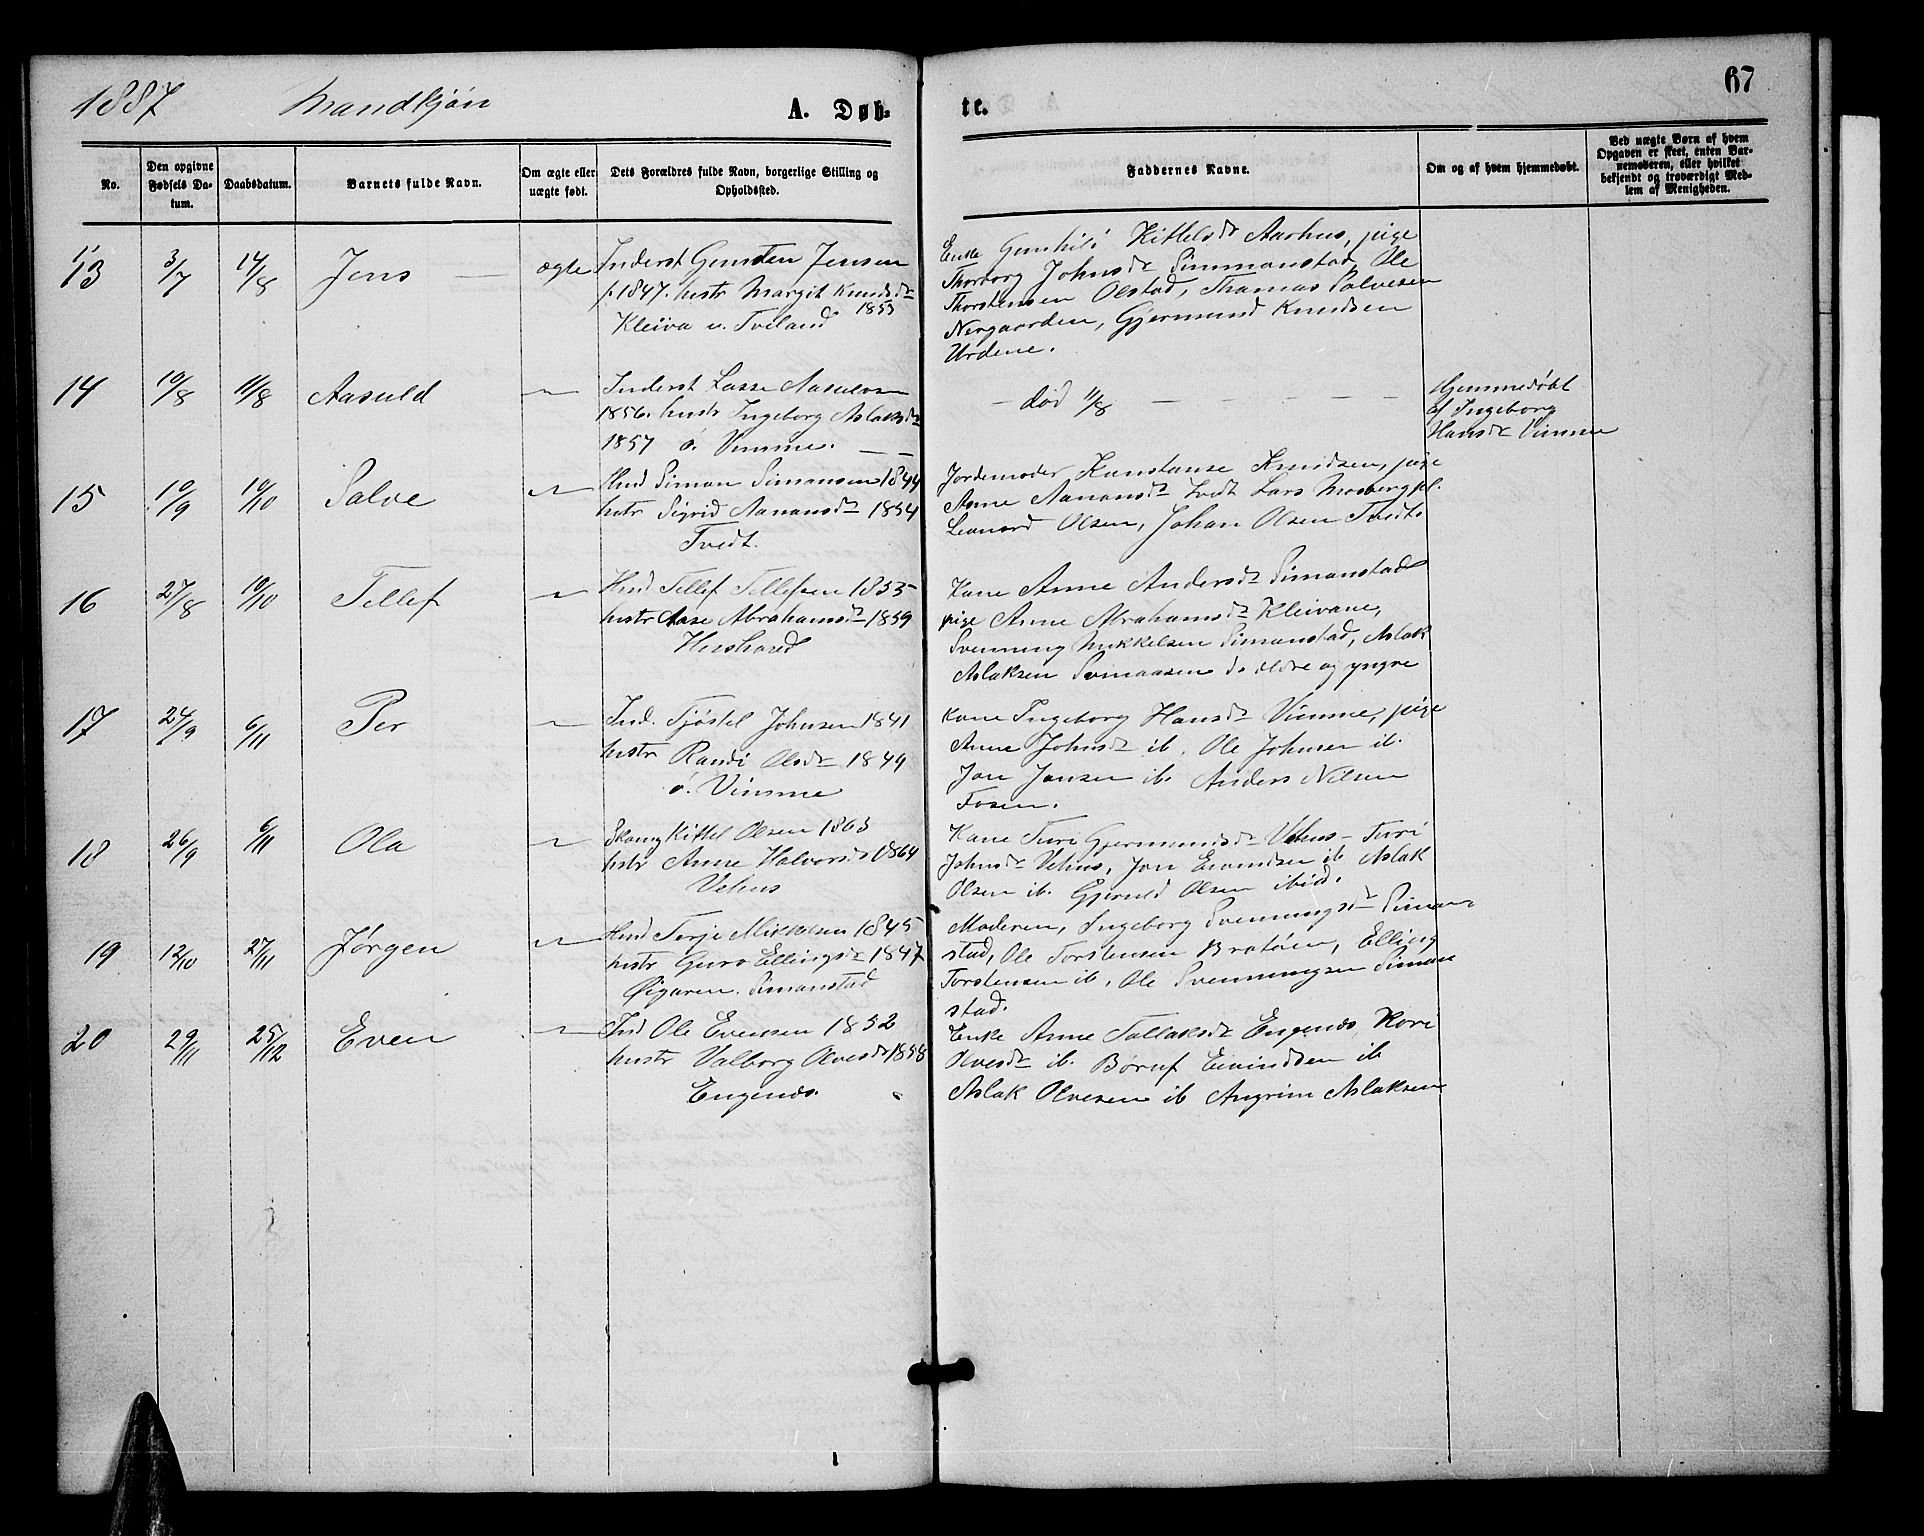 1887 Mandkjøn A. Døb-
te. 67
No.
Den opgivne Fødsels Da-
tum.
Daabsdatum.
Barnets fulde Navn.
Om ægte eller
uægte født.
Dets Forældres fulde Navn, borgerlige Stilling og
Opholdssted.
Faddernes Navne.
Om og af hvem hjemmedøbt.
Ved uægte Børn af hvem
Opgaven er skeet, enten Bar-
nemoderen, eller hvilket
bekjendt og troværdigt Med-
lem af Menigheden.
13 3/7 14/8 Jens ægte
Inderst Gunsten Jensen
f. 1847. hustr Margit Knudsdr
1853
Kleiva u. Tveland
Enke Gunhild Kittelsdr Aarhus, pige
Thorborg Johnsdr Simmonstad, Ole
Thorstensen Olstad, Thomas Salvesen
Nergaarden, Gjermund Knudsen
Urdene.
14 10/8 11/8 Aasuld —
Inderst Lasse Aasulvsen
1856. hustr Ingeborg Aslaksdr
1857 ø. Vimme.
- død 11/8 - - - - -
Hjemmedøbt
af Ingeborg
Hansdr Vimme
15 10/9 10/10 Salve —
Hmd Simon Simonsen 1844
hstr Sigrid Aanonsdr 1854
Tvedt.
Jordemoder Konstanse Knudsen, pige
Anne Aanonsdr Tvedt Lars Mosberg pl.
Leonard Olsen, Johan Olsen Tvedt.
16 27/8 10/10 Tellef —
Hmd Tellef Tellefsen 1855
hustr Aase Abrahamsdr 1859
Kone Anne Andersdr Simonstad
pige Anne Abrahamsdr Kleivane,
Svenning Mikkelsen Simonstad, Aslak
Aslaksen Simaasen d. ældre og yngre
17 24/9 6/11 Per —
Ind. Tjøstel Johnsen 1841
hustr Randi Olsdr 1849
ø. Vimme
Kone Ingeborg Hansdr Vimme, pige
Anne Johnsdr ib. Ole Johnsen ib.
Jon Jonsen ib. Anders Nilsen
Fosen.
18 26/9 6/11 Ola —
Kittel Olsen 1863
hstr Anne Halvorsdr 1864
Vehus
Kone Turi Gjermundsdr Vehus - Turi
Johnsdr Vehus, Jon Evendsen ib. Aslak
Olsen ib. Gjeruld Olsen ibid.
19 12/10 27/11 Jørgen —
Hmd Terje Mikkelsen 1845
hustr Guro Ellingsdr 1847
Øigaren. Simonstad
Moderen, Ingeborg Svenningsdr Simon-
stad, Ole Torstensen Bratøen, Elling
Torstensen ib. Ole Svenningsen Simon-
stad.
20 29/11 25/12 Even —
Ind Ole Evensen 1852
hustr Valborg Olvesdr 1858
Engenes.
Enke Anne Tallaksdr Engenes, Kari
Olvesdr ib. Børuf Eivindsen ib
Aslak Olvesen ib Angrim Aslaksen